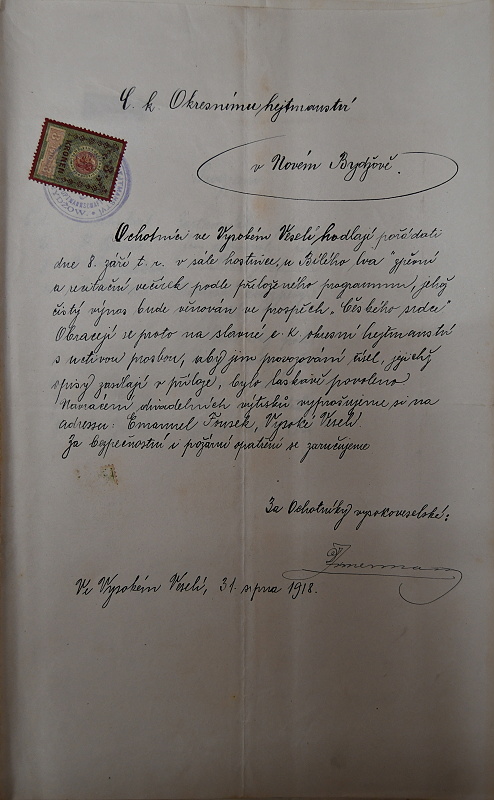 C. k. Okresnímu hejtmanství
v Novém Bydžově.
Ochotníci ve Vysokém Veselí hodlají pořádati
dne 8. září t. r. v sále hostince „u Bílého lva" zpěvní
a recitační večírek podle přiloženého programu, jehož
čistý výnos bude věnován ve prospěch „Českého srdce"
Obracejí se proto na slavné c. k. okresní hejtmanství
s uctivou prosbou, aby jim provozování čísel, jejichž
spisy zasílají v příloze, bylo laskavě povoleno
Navrácení divadelních výtisků vyprošujeme si na
adressu: Emanuel Tousek, Vysoké Veselí.
Za bezpečnostní i požární opatření se zaručujeme
Za Ochotníky vysokoveselské:
Ve Vysokém Veselí, 31. srpna 1918.